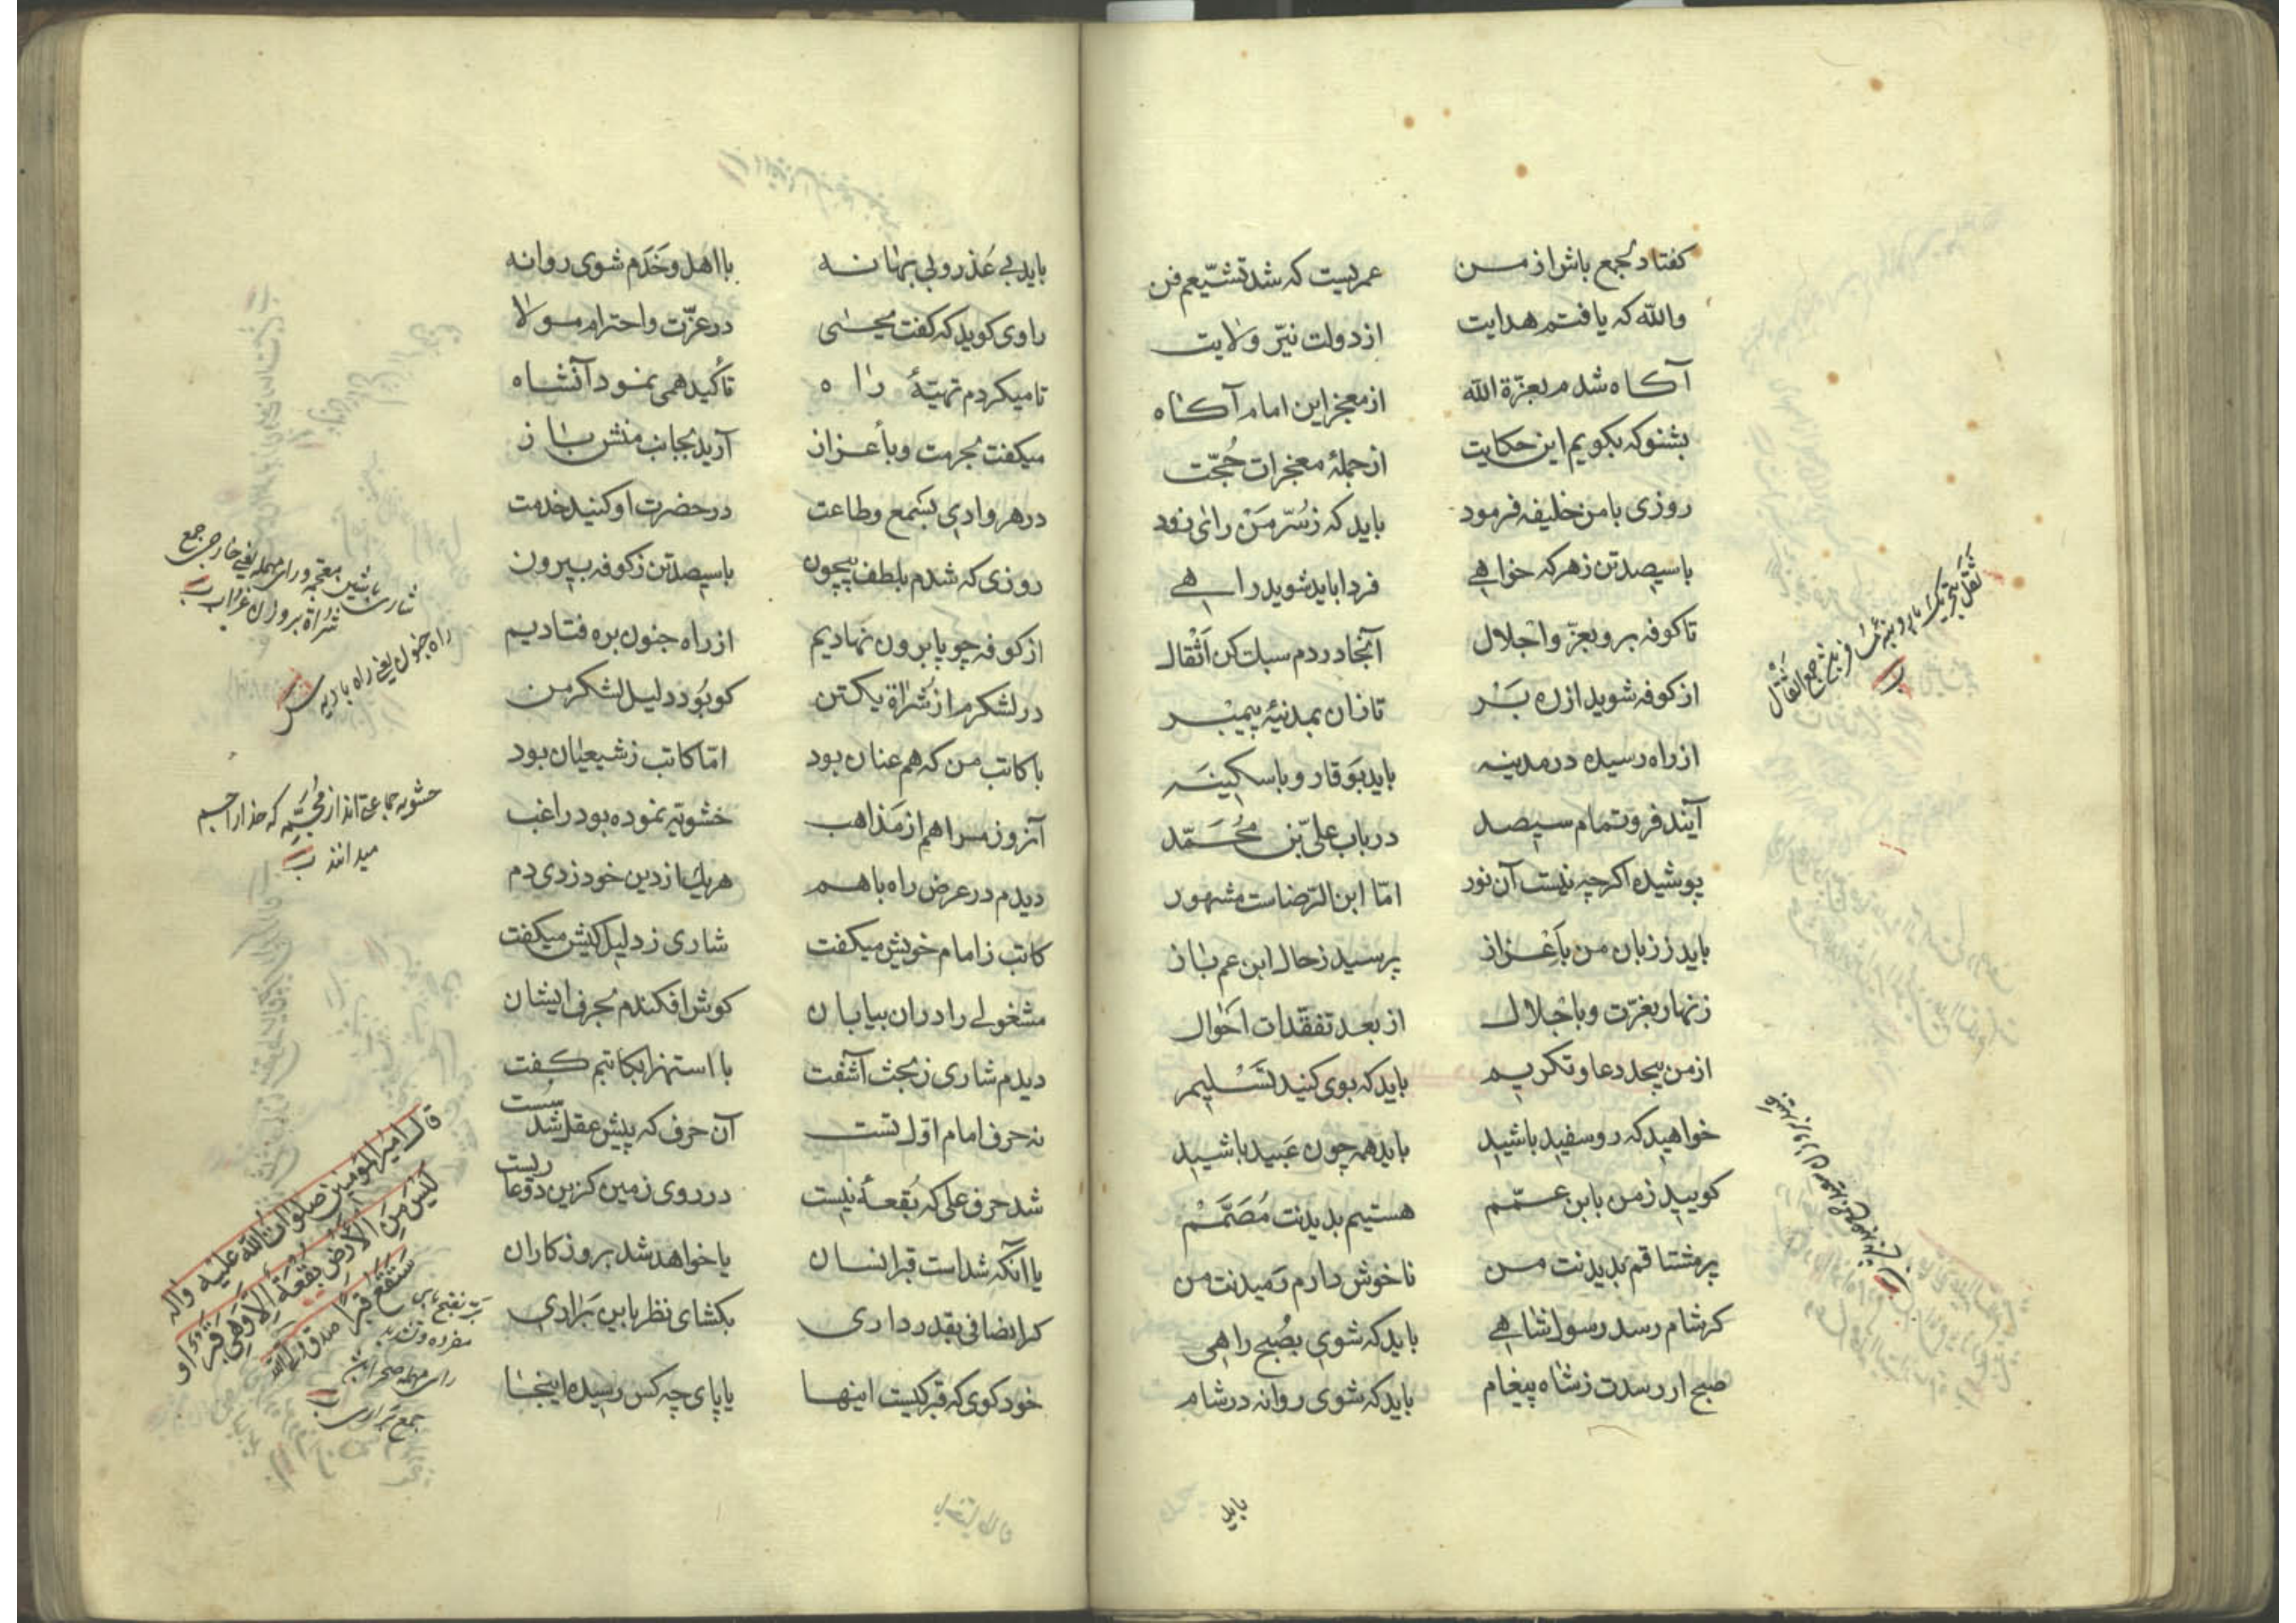 کفتا دلجمع باش از من عمریست که شد تشیّعم فن
والله که یافتم هدایت از دولت نیّر ولایت
آکاه شدم بعزّة الله از معجز این امام آکاه
بشنو که بکویم این حکایت از جملهٔ معجزات حُجّت
روزی با من خلیفه فرمود باید که زسُرّ مَنْ رای زود
با سیصد تن زهر که خواهی فردا باید شوید راهی
تا کوفه برو بعزّ و اجلال آنجا در دم سبک کن اَثْقال
از کوفه شوید از ره بَرْ تا زان بمدینهٔ پیمبر
از راه رسیده در مدینه باید بوَقار و با سکینَه
آیند فرو تمام سیصد در باب علیّ بن مُحَمّد
پوشیده اکرچه نیست آن نور امّا ابن الرّضاست مشهور
باید ززبان من باَعْزاز پرسید زحال ابن عم باز
زنهار بعزّت و باجلال از بعد تفقّدات اَحْوال
از من بیحد دعا و تکریم باید که بوی کنید تَسْلیم
خواهید که روسفید باشید باید همه چون عَبید باشید
کویید زمن بابن عمّم هستیم بدیدنت مُصَمَّمْ
پر مشتاقم بدیدنت من ناخوش دارم رَمیدنت من
کر شام رسد رسول شاهی باید که شوی بصُبح راهی
صبح ار رسدت زشاه پیغام باید که شوی روانه در شام
ثَقَل
باید
باید بی عُذر و بی بهانه با اهل و خَدَم شوی روانه
راوی کوید که کفت یحیی در عزّت و احترام مولا
تا میکردم تهیّهٔ راه تأکید همی نمود آنشاه
میکفت بحرمت و بأعزاز آرید بجانب منش باز
در هر وادی بسَمع و طاعت در حضرت او کنید خدمت
روزی که شدم بلطف بیچون با سیصد تن زکوفه بیرون
از کوفه چو پا برون نهادیم از راه جنون بره فتادیم
در لشکرم از شُراة یکتن کو بُود دلیل لشکر من
با کاتب من که هم عنان بود امّا کاتب زشیعیان بود
آنروز مرا هم از مَذاهب حشویّه نموده بود راغب
دیدم در عرض راه با هم هریک از دین خود زدی دم
کاتب زامام خویش میکفت شاری زدلیل کیش میکفت
مشغولی را دران بیابان کوش افکندم بحرف ایشان
دیدم شاری زبحث آشفت با استهزا بکاتبم کفت
نه حرف امام اوّل تست آن حرف که پیش عقل شد سست
شد حرف علی که بُقعهٔ نیست در روی زمین کزین دو عاریست
یا آنکه شداست قبر انسان یا خواهد شد بروزکاران
کر انصافی بقدر داری بکشای نظر باین بَراری
خود کوی که قبر کیست اینها یا پای چه کس رسیده اینجا
شاری باشین معجمه و رای مهمله یعنی خارجی جمع
شراة بر وزن غراب
راه جنون یعنی راه بادیه
حشویه جماعتی اند از مُجَسّمه که خدا را جسم
میدانند
قال امیر المؤمنین صلوات الله علیه و اله
لَیْسَ مِنَ الأرْضِ بُقْعَة اِلّا وَهِیَ قَبْرٌ او
سَتَقَعُ قَبرًا صدق ولی الله
بر بفتح بای
مفرده و تشدید
رای مهمله صحرا
جمع براری